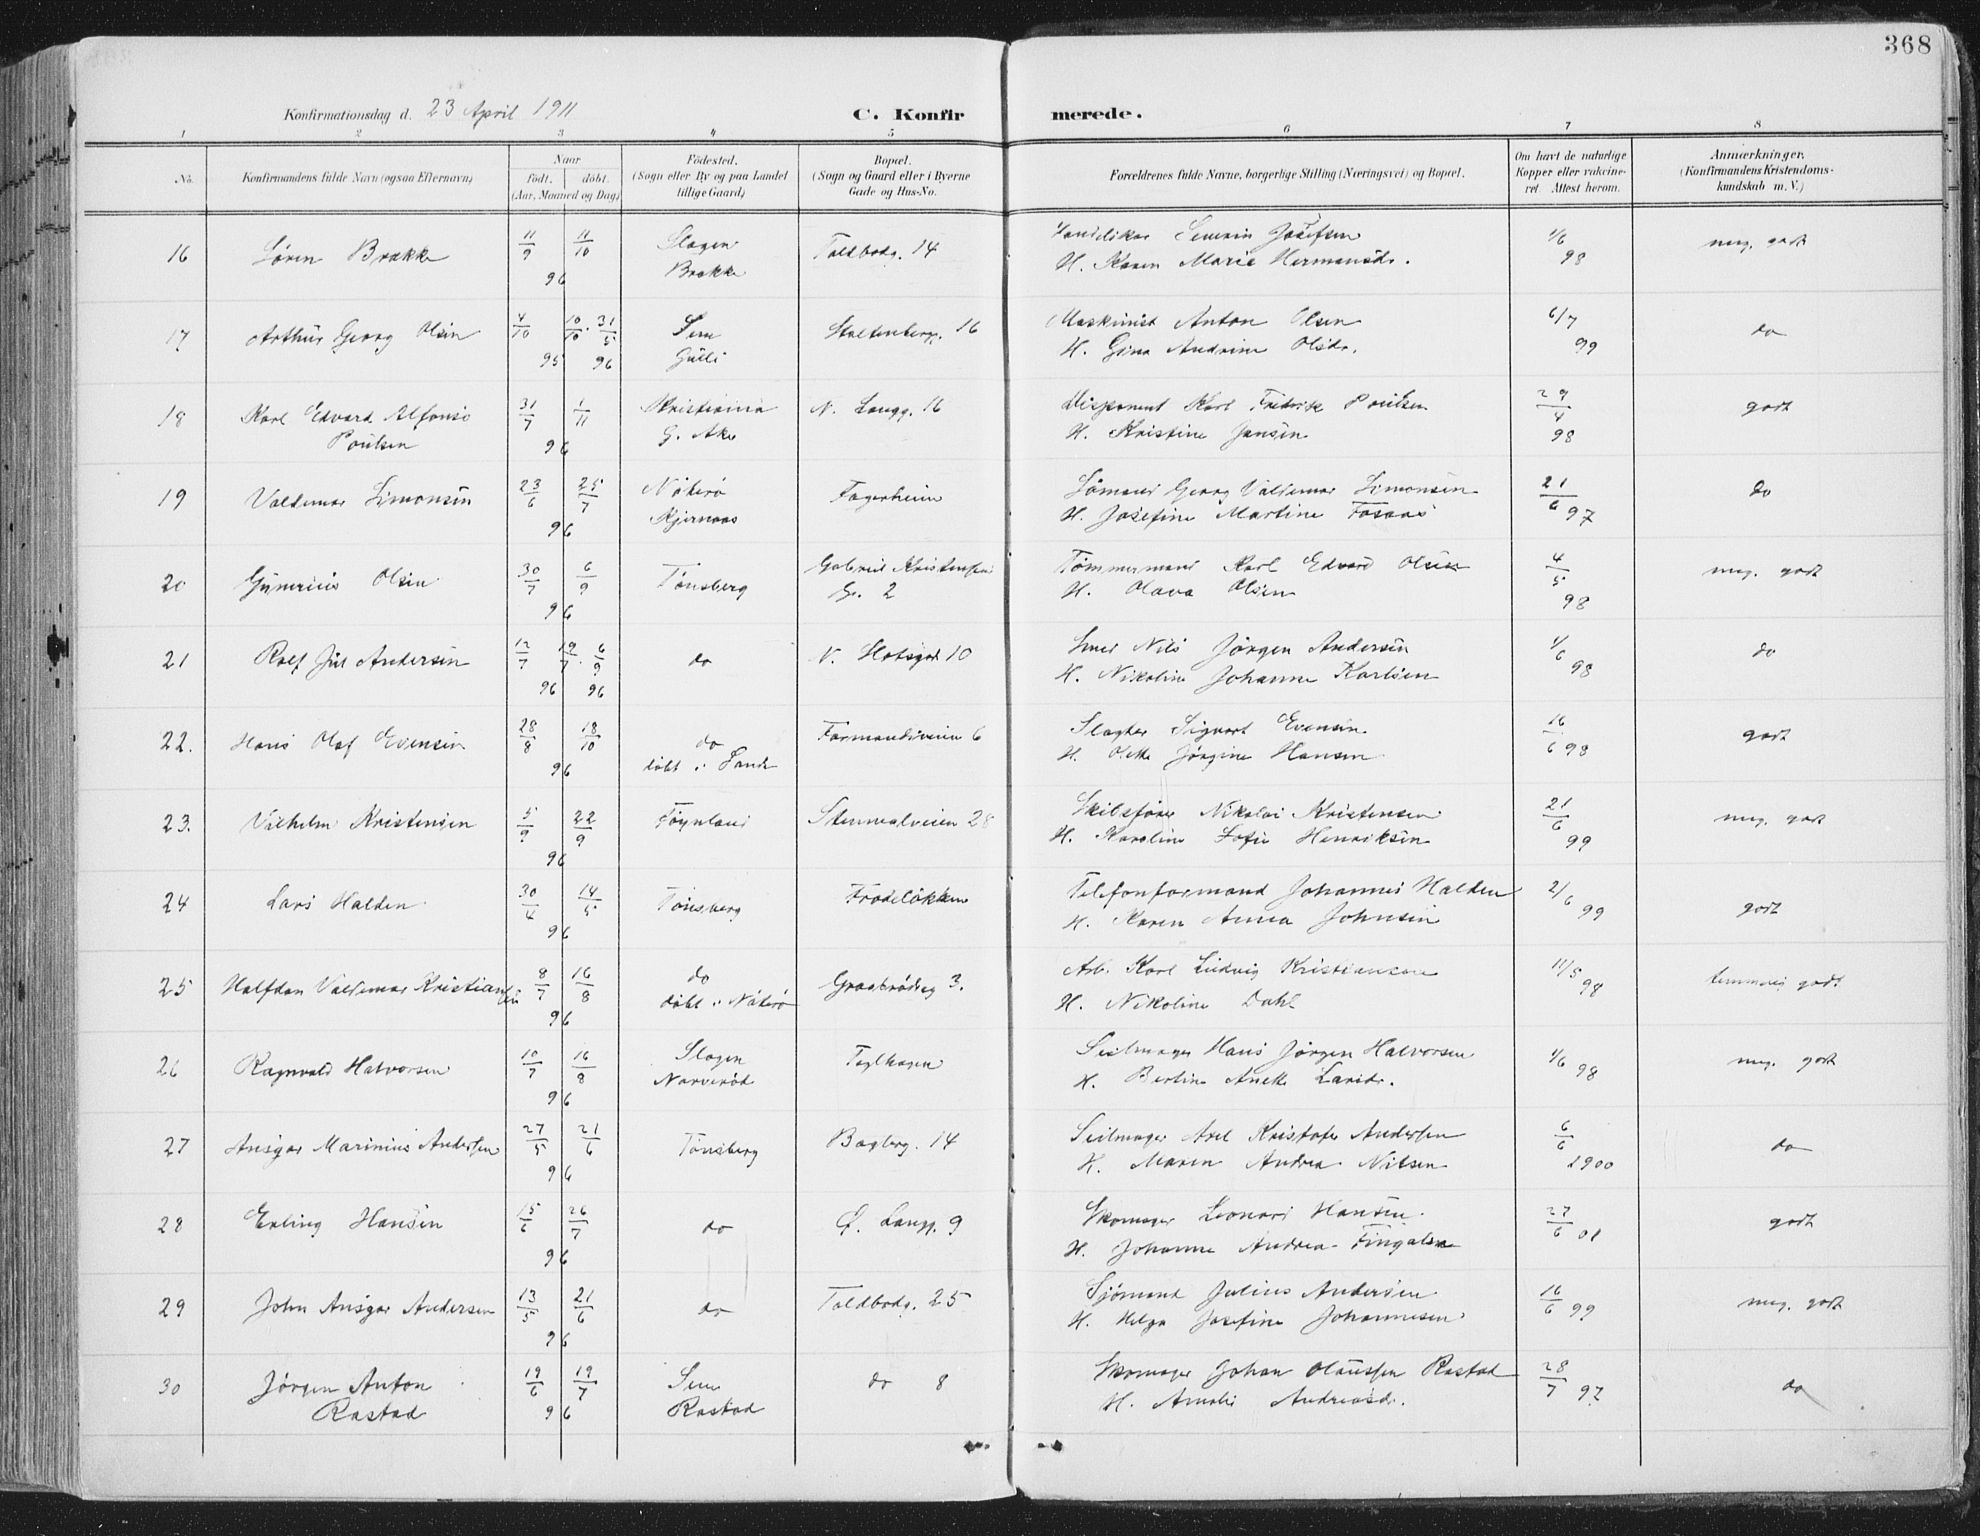 368
Konfirmationsdag d. 23 April 1911
C. Konfirmerede.
1 2 3 4 5 6 7 8
No.
Konfirmandens fulde Navn (ogsaa Efternavn)
Naar
Födt. döbt.
(Aar, Maaned og Dag)
Födested.
(Sogn eller By og paa Landet
tillige Gaard)
Bopæl.
(Sogn og Gaard eller i Byerne
Gade og Hus-No.
Forældrenes fulde Navne, borgerlige Stilling (Næringsvei) og Bopæl.
Om havt de naturlige
Kopper eller vakcine-
ret. Attest herom.
Anmærkninger.
(Konfirmandens Kristendoms-
kundskab m. V.)
16 Sören Brække 11/9 11/10 96 Slagen Brække Toldbodg. 14 Severin Josefsen 1/6 98 meg. godt
H. Karen Marie Hermansdr.
17 Arthur Georg Olsen 4/10 95 10/10. 31/5 96 Sem Gulli Stoltenbergg. 16 Maskinist Anton Olsen 6/7 99 do
H. Gina Andrine Olsdr.
18 Karl Edvard Alfons Poulsen 31/7 1/11 96 Kristiania G. Aker N. Langg. 16 Disponent Karl Fredrik Poulsen 29/4 98 godt
H. Kristine Jensen
19 Valdemar Simonsen 23/6 25/7 96 Nöterö Kjernaas Fagerheim Sömand Georg Valdemar Simonsen 21/6 97 do
H. Josefine Martine
20 Olsen 30/7 6/9 96 Tönsberg Gabriel Kristensens G. 2 Tömmermand Karl Edvard Olsen 4/5 98 meg. godt
H. Olava Olsen
21 Rolf Jul Andersen 12/7 96 19/7. 6/9 96 do V. 10 Smed Nils Jörgen Andersen 1/6 98 do
H. Nikoline Johanne Karlsen
22. Hans Olaf Evensen 28/8 18/10 96 do döbt i Sande Farmandsveien 6 Slagter Sigvart Evensen 16/6 98 godt
H. Olette Jörgine Hansen
23. Vilhelm Kristensen 5/9 22/9 96 Föynland Stenmalveien 28 Skibsförer Nikolai Kristensen 21/6 99 meg. godt
H. Karoline Sofie Henriksen
24 Lars Halden 30/4 14/5 96 Tönsberg Frodelökken Telefonformand Johannes Halden 2/6 99 godt
H. Karen Anna Johnsen
25 Halfdan Valdemar Kristiansen 8/7 16/8 96 do döbt i Nöterö Graabrödreg 3. Arb. Karl Ludvig Kristiansen 11/5 98 temmeli godt
H. Nikoline Dahl
26 Ragnvald Halvorsen 10/7 16/8 96 Slagen Narveröd Teglhagen Seilmager Hans Jörgen Halvorsen 1/6 98 meg. godt
H. Berline Anette Larsdr.
27 Ansgar Marinius Andersen 27/5 21/6 96 Tönsberg Bagberg. 14 Seilmager Axel Kristofer Andersen 6/6 1900 do
H. Maren Andrea Nilsen
28 Erling Hansen 15/6 26/7 96 do Ö. Langg. 9 Skomager Leonard Hansen. 27/6 01 godt
H. Johanne Andrea Fingalsen
29 John Ansgar Andersen 13/5 21/6 96 do Toldbodg. 25 Sjömand Julius Andersen 16/6 99 meg. godt
H. Helga Josefine Johannesen
30 Jörgen Anton Rastad 19/6 19/7 96 Sem Rastad do 8 Skomager Johan Olaussen Rastad 28/7 97 do
H. Amalie Andreasdr.